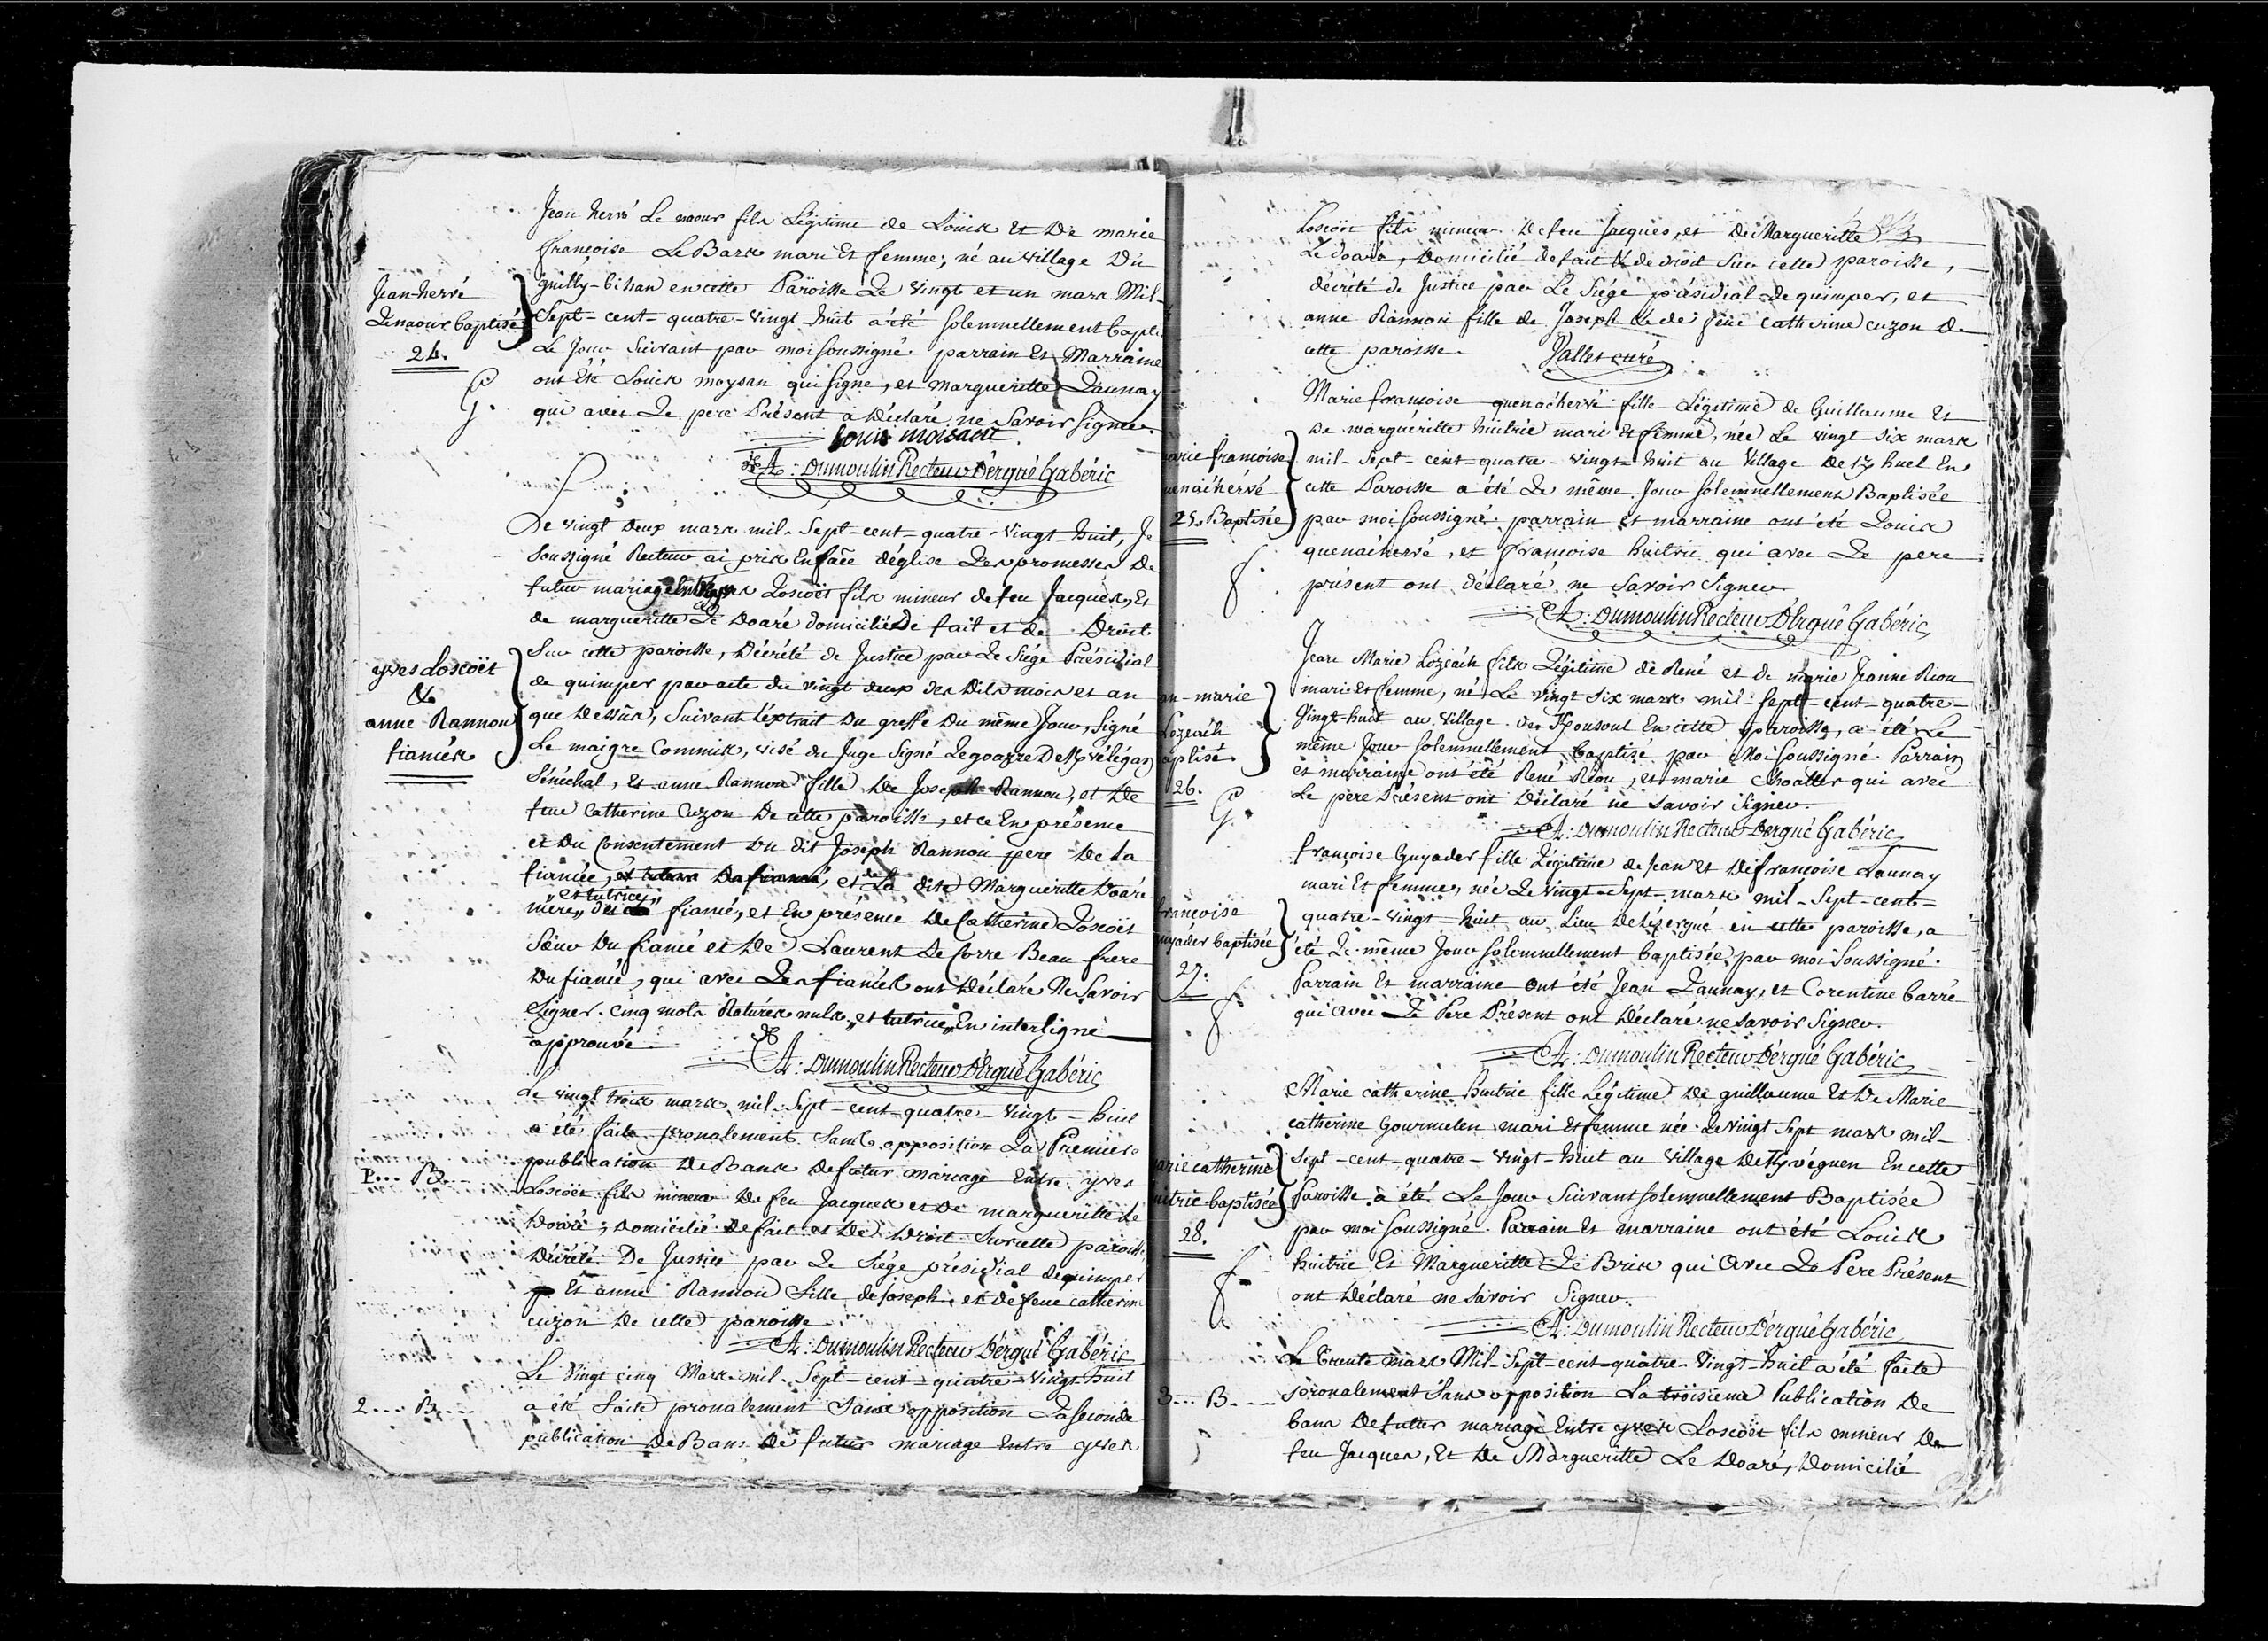 Jean hervé Le naour fils Légitime de Louis et De marie
françoise Le Bars mari Et femme; né au village Du
guilly-bihan en cette Paroisse Le vingt et un mars Mil-
Jean-hervé
Lenaour baptisé
24.
G.
Sept-cent-quatre-vingt-huit a été solemnellement bapti
Le Jour suivant par moi soussigné. parrain Et Marraine
ont Eté Louis moysan qui signe, et margueritte Launay
qui avec Le pere Présent a Déclaré ne Savoir signer.
louis moisant
A: Dumoulin Recteur D'ergué Gabéric
Le vingt deux mars mil-Sept-cent-quatre-vingt-huit, Je
soussigné Recteur ai pris En face d'église Les promesses De
futur mariage Entre Loscöet fils mineur de feu Jacques, Et
de margueritte Le Doaré domicilié De fait et de Droit
yves Loscoët
&
anne Rannou
fiancés
Sur cette paroisse, Décrété de Justice par Le Siége Présidial
de quimper par acte du vingt deux des Dits mois et an
que Dessus, Suivant L'extrait Du greffe Du même Jour, Signé
Le maigre Commis, visé du Juge Signé Legoazre De Kvélégan
Sénéchal, Et anne Rannou fille De Joseph Rannou, et De
feue Catherine Cuzon De cette paroisse, et ce En présence
et Du Consentement Du dit Joseph Rannou pere De La
fiancée, et de La dite Margueritte Doaré
"et tutrice"
mère du fiancé, et En présence De Catherine Loscöet
Soeur Du fiancé et De Laurent Le Corre Beau frere
Du fiancé, qui avec Les fiancés ont Déclaré Ne Savoir
Signer. cinq mots Raturés nuls, "et tutrice" En interligne
approuvé
A: Dumoulin Recteur D'ergué Gabéric
Le vingt trois mars mil-Sept-cent-quatre-vingt-huit
a été faite pronalement Sans opposition La Premiere
1... B...
publication De Bans De futur mariage Entre yves
Loscöet fils mineur De feu Jacques et De margueritte Le
Doaré, Domicilié De fait et De Droit Sur cette paroisse
Décrété De Justice par Le Siége présidial de quimper
Et anne Rannou fille de joseph, et de feue catherine
cuzon De cette paroisse
A: Dumoulin Recteur D'ergué Gabéric
Le Vingt cinq Mars mil-Sept-cent-quatre-vingt huit
2.... B....
a été faite pronalement Sans opposition La Seconde
publication De Bans De futur mariage Entre yves
Loscöet fils mineur De feu Jacques, et De Margueritte
Le doaré, Domicilié de fait & de droit Sur cette paroisse,
décrété de Justice par Le Siége présidial de quimper, et
anne Rannou fille de Joseph & de feue Catherine cuzon De
cette paroisse. Jallet curé
Marie françoise quenac'hervé fille Légitime de Guillaume Et
De marguéritte huitrie mari Et femme, née Le vingt six mars
arie françoise
uenac'hervé
25. Baptisée
mil-Sept-cent-quatre-vingt-huit au Village De Ty huel En
cette Paroisse a été Le même Jour solemnellement Baptisée
par moi soussigné. parrain et marraine ont été Louis
quenac'hervé, et françoise huitrie qui avec Le pere
présent ont déclaré ne Savoir signer
A: Dumoulin Recteur D'Ergué Gabéric
Jean Marie Lozéac'h fils Légitime de René et de marie Jeanne Riou
mari Et femme, né Le vingt six mars mil-Sept-cent-quatre-
an-marie
Lozeac'h
aptisé
26.
G.
Vingt-huit au village de En cette paroisse, a été Le
même Jour solemnellement baptisé par Moi soussigné. Parrain
et marraine ont été René Riou, et marie qui avec
Le pere Présent ont Déclaré ne savoir signer.
A: Dumoulin Recteur D'ergué Gabéric
françoise Guyader fille Légitime de Jean Et De françoise Launay
mari Et femme, née Le vingt-Sept mars mil-Sept-cent-
rançoise
uyader baptisée
27.
quatre-vingt-huit au Lieu De Lézergué en cette paroisse, a
été Le même Jour solemnellement baptisée par moi soussigné.
Parrain Et marraine ont été Jean Launay, et Corentine barré
qui avec Le Pere Présent ont Déclaré ne savoir signer.
A: Dumoulin Recteur D'ergué Gabéric
Marie catherine huitrie fille Légitime de guillaume Et De Marie
catherine Gourmelen mari et femme née Le vingt Sept mars mil-
arie catherine
uitrie baptisée
28.
Sept-cent-quatre-vingt-huit au village De Kvéguen En cette
Paroisse a été Le Jour Suivant solemnellement Baptisée
par moi soussigné. Parrain Et marraine ont été Louis
huitrie Et Margueritte Le Bris qui avec Le Pere Présent
ont Déclaré ne Savoir Signer.
A: Dumoulin Recteur D'ergué Gabéric
Le trente Mars Mil-Sept-cent-quatre-Vingt-huit a été faite
3... B...
pronalement Sans opposition La troisieme Publication De
bans De futur mariage Entre yves Loscöet fils mineur De
feu Jacques, Et De Margueritte Le Doaré, Domicilié